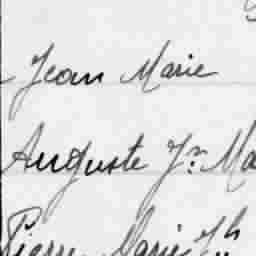 Jean Marie
Auguste Jn Ma
Pierre Marie Jh